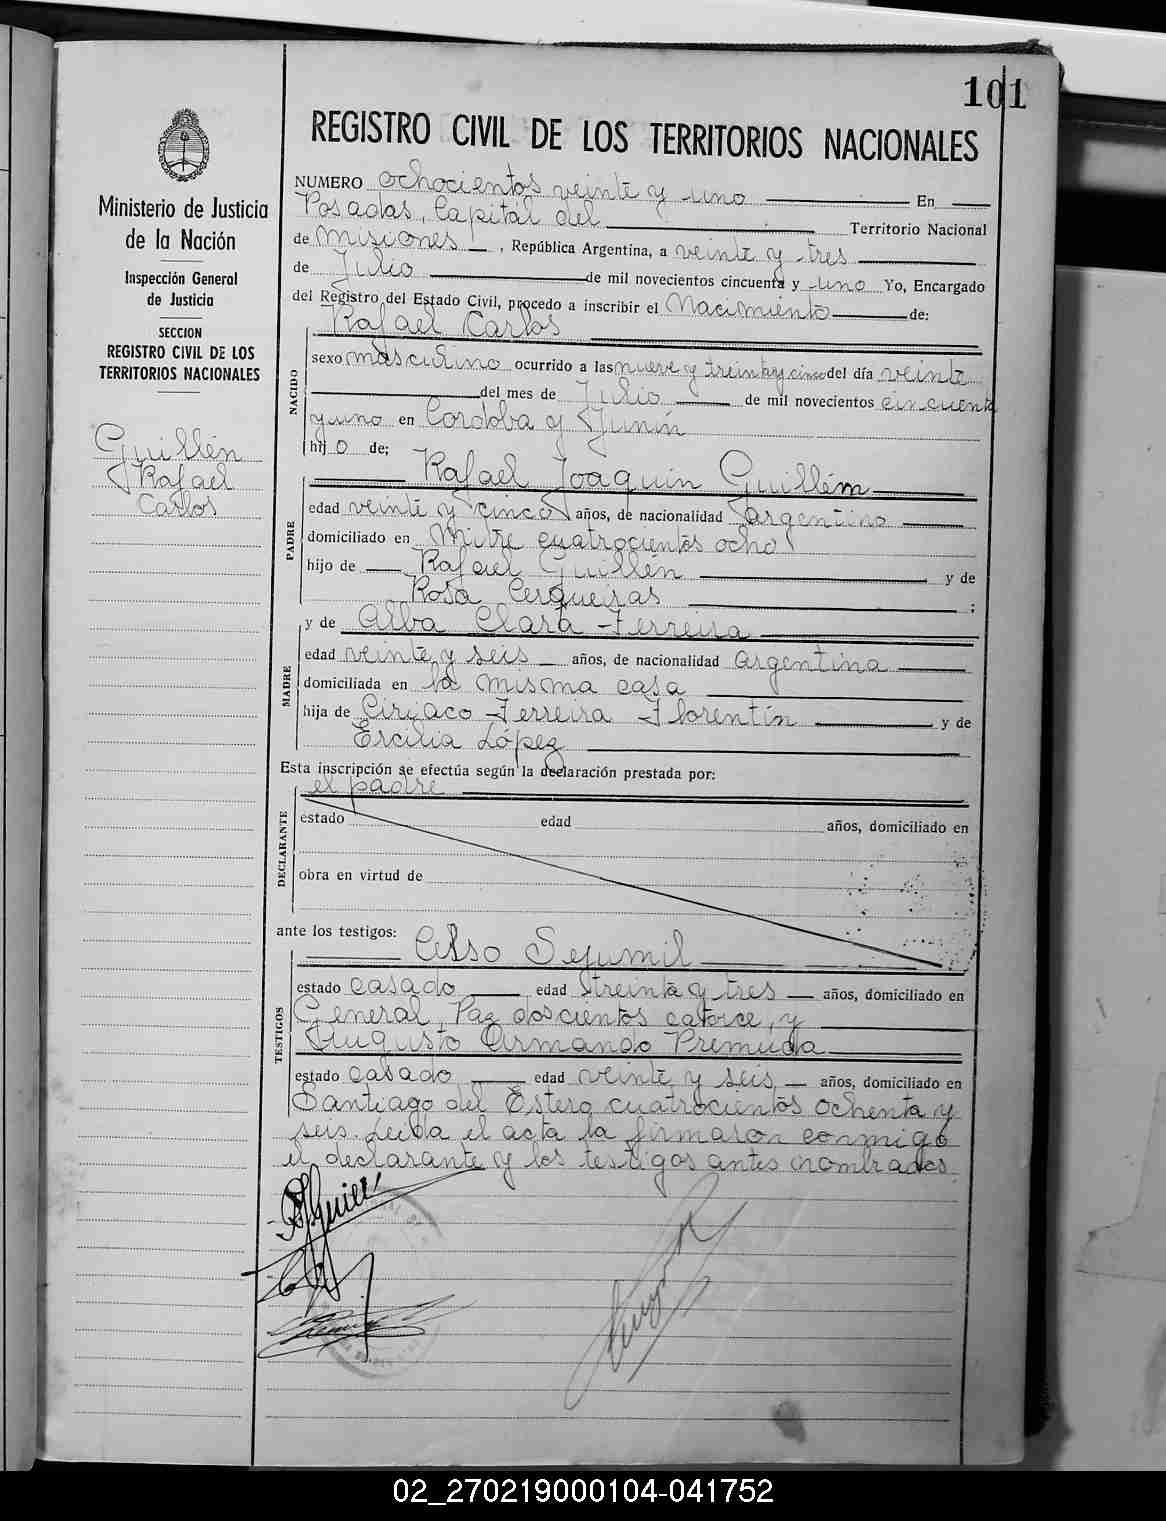 101
REGISTRO CIVIL DE LOS TERRITORIOS NACIONALES
Ministerio de Justicia
de la Nación
Inspección General
de Justicia
SECCION
REGISTRO CIVIL DE LOS
TERRITORIOS NACIONALES
Guillén
Rafael
Carlos
NUMERO ochocientos veinte y uno En
Posadas, Capital del Territorio Nacional
de Misiones, República Argentina, a veinte y tres
de Julio de mil novecientos cincuenta y uno Yo, Encargado
del Registro del Estado Civil, procedo a inscribir el Nacimiento de:
Rafael Carlos
NACIDO
sexo masculino ocurrido a las nueve y treinta y cinco del día veinte
del mes de Julio de mil novecientos cincuenta
y uno en Cordoba y Junín
hijo de;
Rafael Joaquin Guillén
PADRE
edad veinte y cinco años, de nacionalidad argentino
domiciliado en Mitre cuatrocientos ocho
hijo de Rafael Guillén y de
Rosa Cerqueiras ;
y de Alba Clara Ferreira
MADRE
edad veinte y seis años, de nacionalidad argentina
domiciliada en la misma casa
hija de Ciriaco Ferreira Florentín y de
Ercilia López
Esta inscripción se efectúa según la declaración prestada por:
el padre
DECLARANTE
estado edad años, domiciliado en
obra en virtud de
ante los testigos:
Celso Sejumil
TESTIGOS
estado casado edad treinta y tres años, domiciliado en
General Paz doscientos catorce, y
Augusto Armando Premuda
estado casado edad veinte y seis años, domiciliado en
Santiago del Estero cuatrocientos ochenta y
seis. Leida el acta la firmaron conmigo
el declarante y los testigos antes nombrados.
02_270219000104-041752